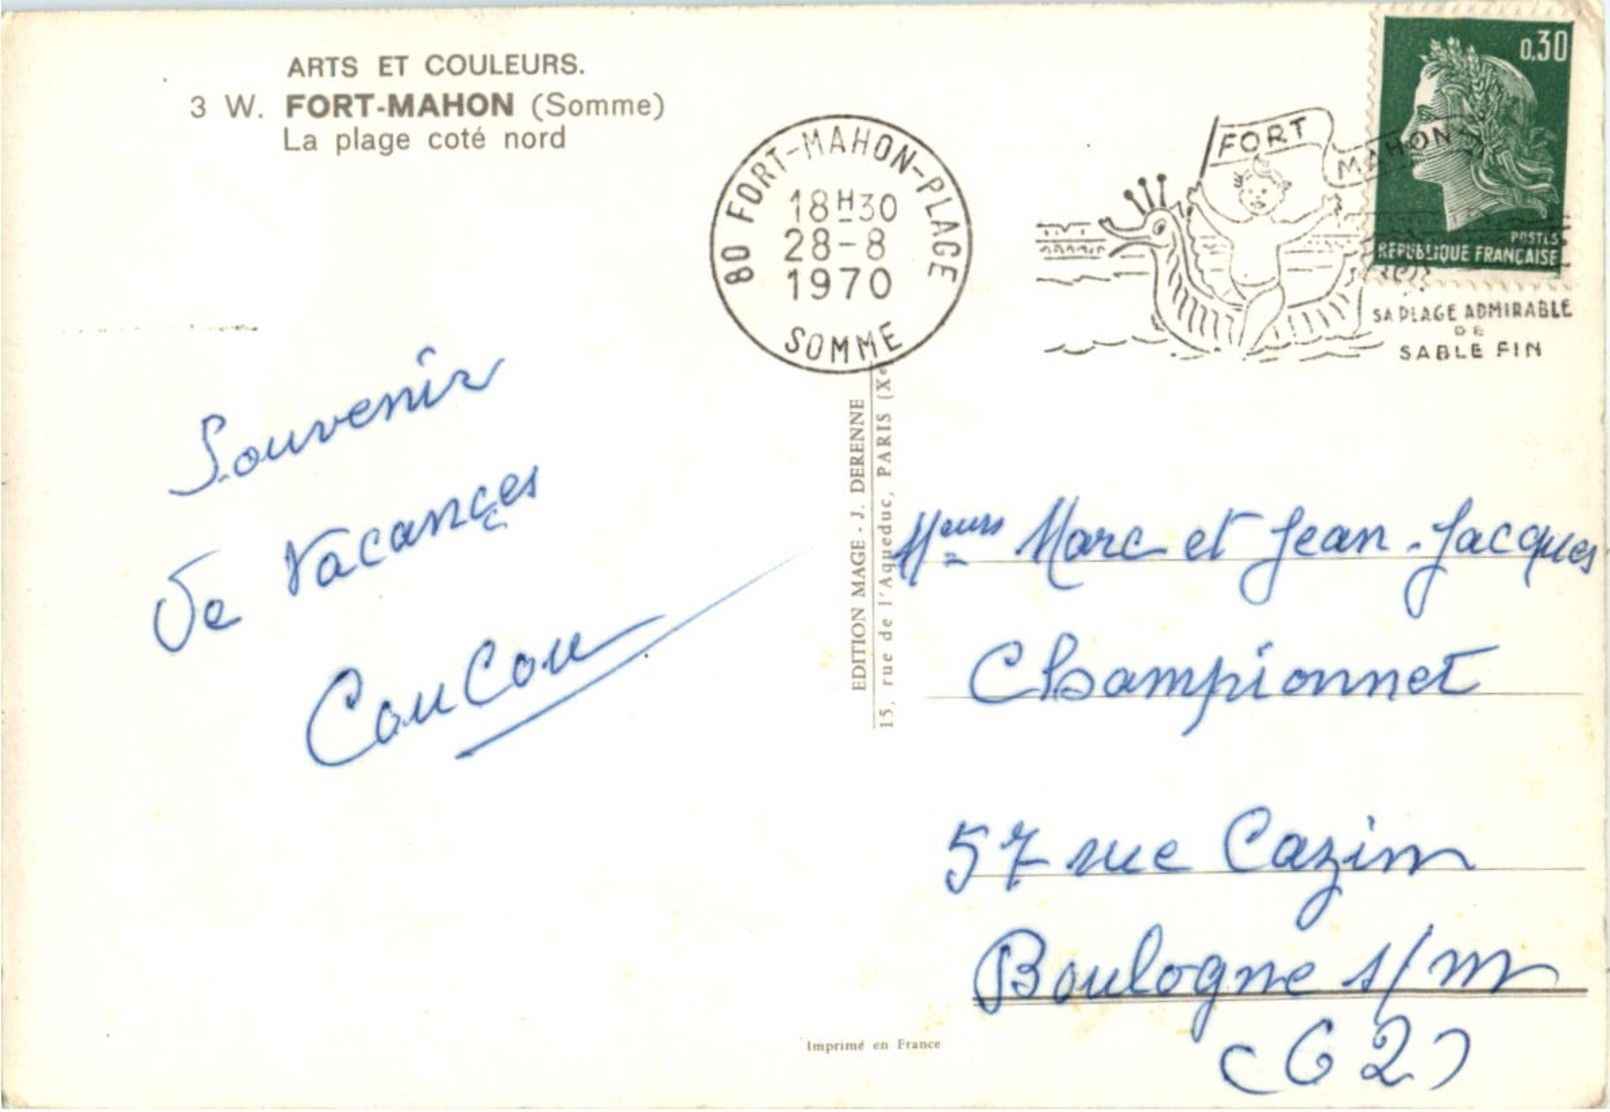 ARTS ET COULEURS.
3 W. FORT-MAHON (Somme)
La plage coté nord
80 FORT-MAHON-PLAGE
18H30
28-8
1970
SOMME
FORT MAHON
0,30
POSTES
REPUBLIQUE FRANÇAISE
SA PLAGE ADMIRABLE
DE
SABLE FIN
Souvenir
de Vacances
CouCou
EDITION MAGE - J. DERENNE
15, rue de l'Aqueduc, PARIS (Xe
Meurs Marc et Jean-Jacques
Championnet
57 rue Cazin
Boulogne s/m
(62)
Imprimé en France